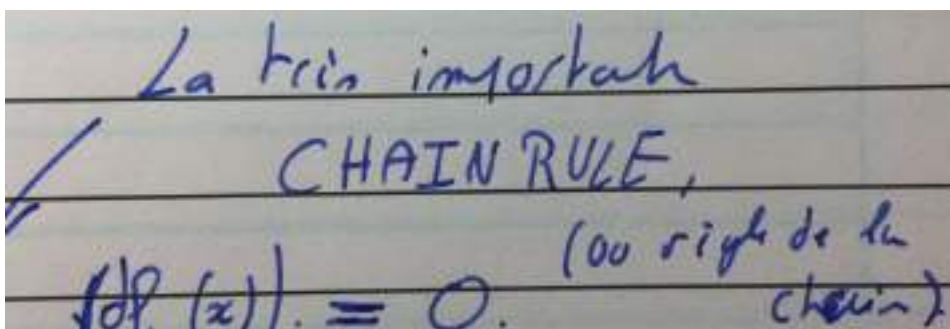 La très importante
CHAIN RULE,
(ou règle de la
chain).
(df (x)). = 0.